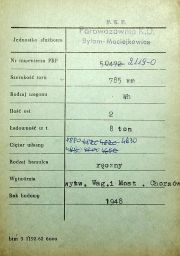 P. K. P.
Jednostka służbowa Parowozownia K.D.
Bytom-Maciejkowice
Nr inwentarza PKP 2119-O
Szerokość toru 785 mm
Rodzaj wagonu Wh
Ilość osi 2
Ładowność w t 8 ton
Ciężar własny 4880 4820 4820 4830
Rodzaj hamulca ręczny
Wytwórnia wytw. Wag.i Most. Chorzów
Rok budowy 1948